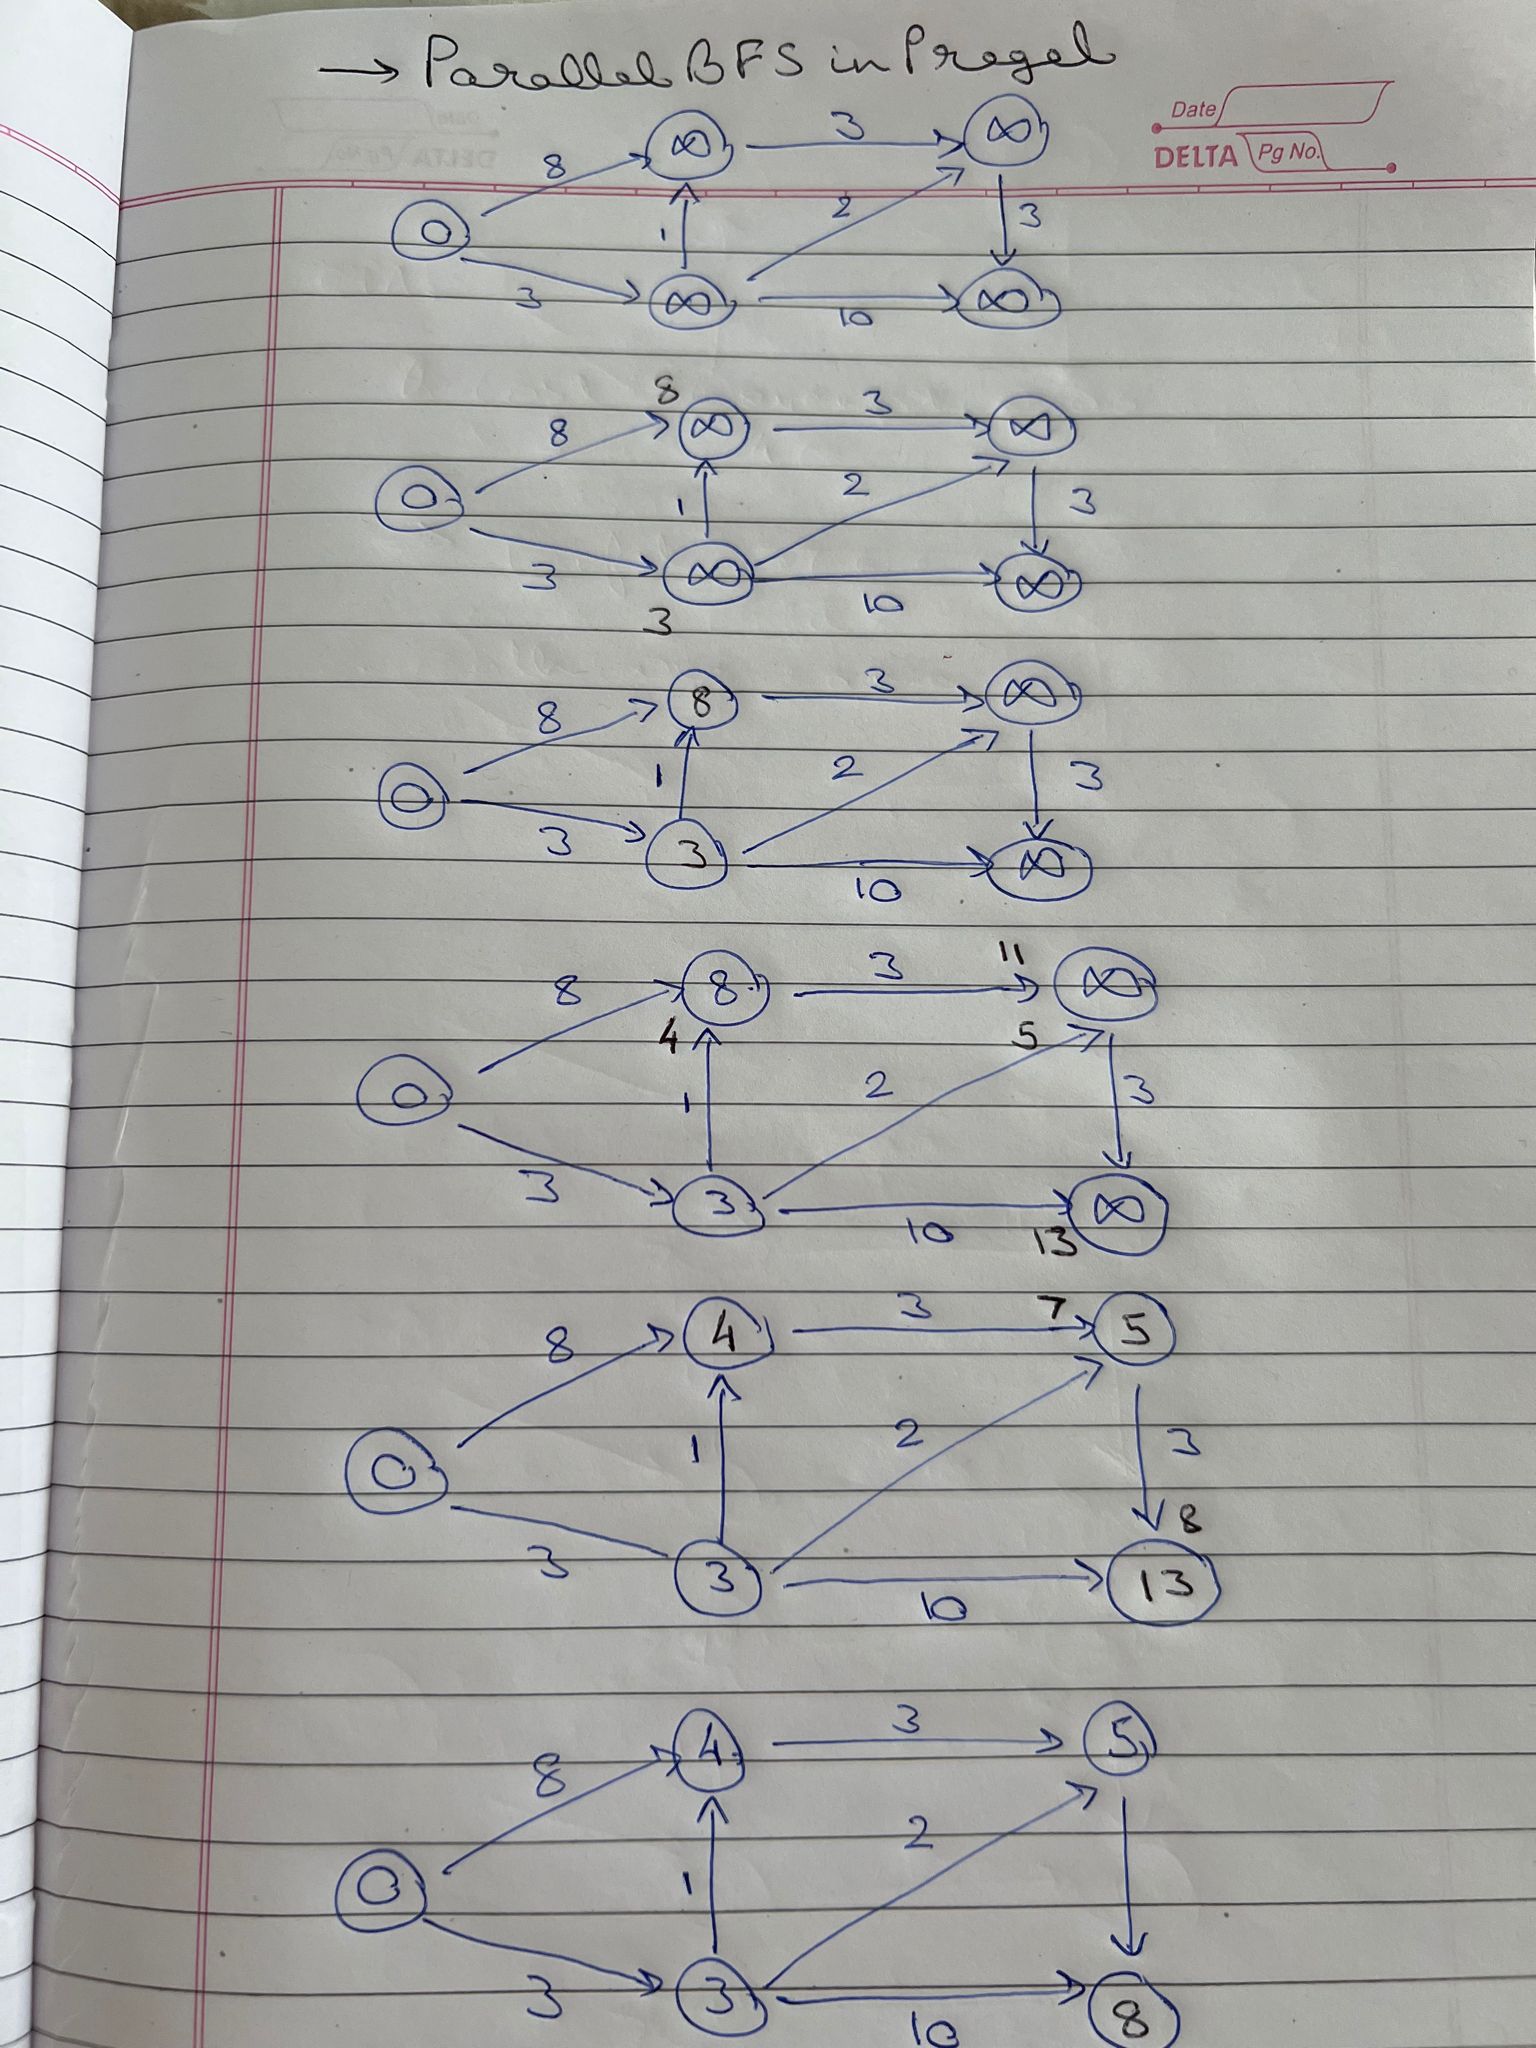 → Parallel BFS in Pregel
Date
DELTA Pg No.
∞ 3 ∞
8
0 1 2 3
3 ∞ 10 ∞
8
8 ∞ 3 ∞
0 1 2 3
3 ∞ 10 ∞
3
8 8 3 ∞
0 1 2 3
3 3 10 ∞
8 8 3 11 ∞
4 5
0 1 2 3
3 3 10 13 ∞
8 4 3 7 5
0 1 2 3
8
3 3 10 13
8 4 3 5
0 1 2
3 3 10 8